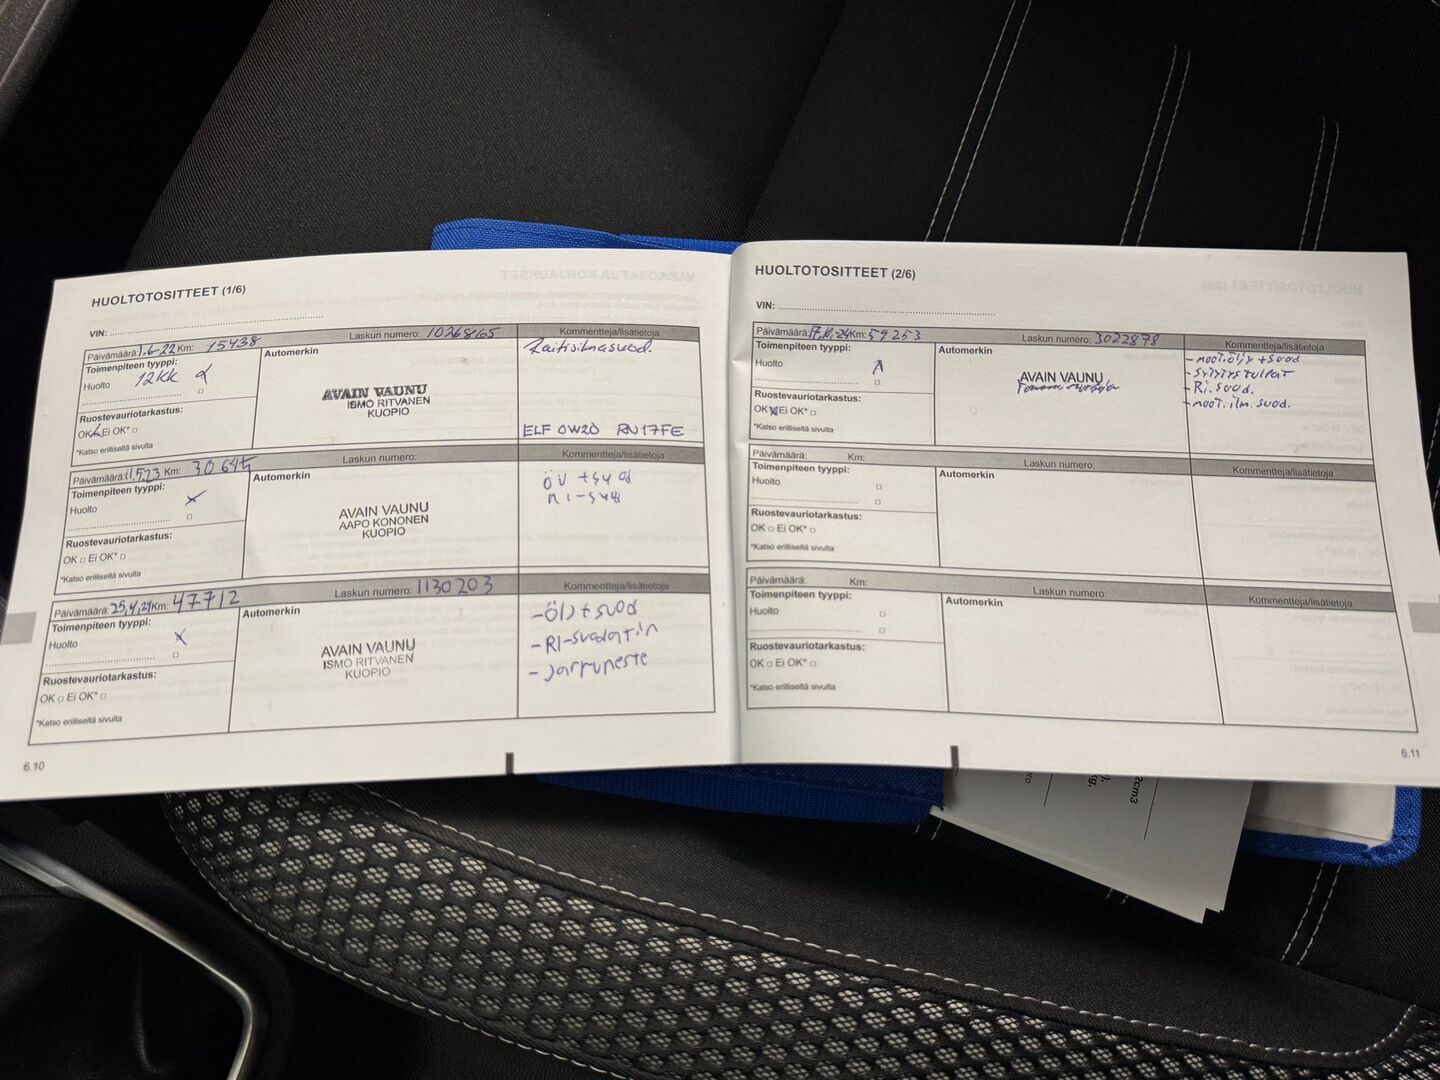 HUOLTOTOSITTEET (1/6)
VIN:
Päivämäärä: 1.6-22 Km: 15438 Laskun numero: 10268165 Kommentteja/lisätietoja
Toimenpiteen tyyppi:
Huolto 12KK
Automerkin
Raitisilmasuod.
AVAIN VAUNU
ISMO RITVANEN
KUOPIO
Ruostevauriotarkastus:
OK Ei OK*
*Katso erilliseltä sivulta
ELF 0W20 RN17FE
Päivämäärä: 11,5,23 Km: 30645 Laskun numero: Kommentteja/lisätietoja
Toimenpiteen tyyppi:
Huolto
Automerkin
öv + suod
RI-suod
AVAIN VAUNU
AAPO KONONEN
KUOPIO
Ruostevauriotarkastus:
OK Ei OK*
*Katso erilliseltä sivulta
Päivämäärä: 25,4,24 Km: 47712 Laskun numero: 1130203 Kommentteja/lisätietoja
Toimenpiteen tyyppi:
Huolto
Automerkin
-ölj + suod
-RI-suodatin
-Jarruneste
AVAIN VAUNU
ISMO RITVANEN
KUOPIO
Ruostevauriotarkastus:
OK Ei OK*
*Katso erilliseltä sivulta
6.10
HUOLTOTOSITTEET (2/6)
VIN:
Päivämäärä: Km: 59253 Laskun numero: 3022878 Kommentteja/lisätietoja
Toimenpiteen tyyppi:
Huolto
Automerkin
-moot.öljy + suod
-sytytystulpat
-Ri.suod.
-moot.ilm.suod.
AVAIN VAUNU
Ruostevauriotarkastus:
OK Ei OK*
*Katso erilliseltä sivulta
Päivämäärä: Km: Laskun numero: Kommentteja/lisätietoja
Toimenpiteen tyyppi:
Huolto
Automerkin
Ruostevauriotarkastus:
OK Ei OK*
*Katso erilliseltä sivulta
Päivämäärä: Km: Laskun numero: Kommentteja/lisätietoja
Toimenpiteen tyyppi:
Huolto
Automerkin
Ruostevauriotarkastus:
OK Ei OK*
*Katso erilliseltä sivulta
6.11